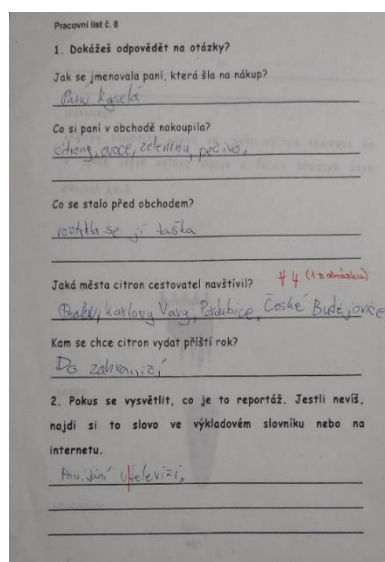 Pracovní list č. 8
1. Dokážeš odpovědět na otázky?
Jak se jmenovala paní, která šla na nákup?
Paní Kyselá
Co si paní v obchodě nakoupila?
citrony, ovoce, zeleninu, pečivo,
Co se stalo před obchodem?
roztrhla se jí taška
Jaká města citron cestovatel navštívil?
Karlovy Vary, Pardubice, České Budějovice
Kam se chce citron vydat příští rok?
Do zahraničí
2. Pokus se vysvětlit, co je to reportáž. Jestli nevíš,
najdi si to slovo ve výkladovém slovníku nebo na
internetu.
televizi,